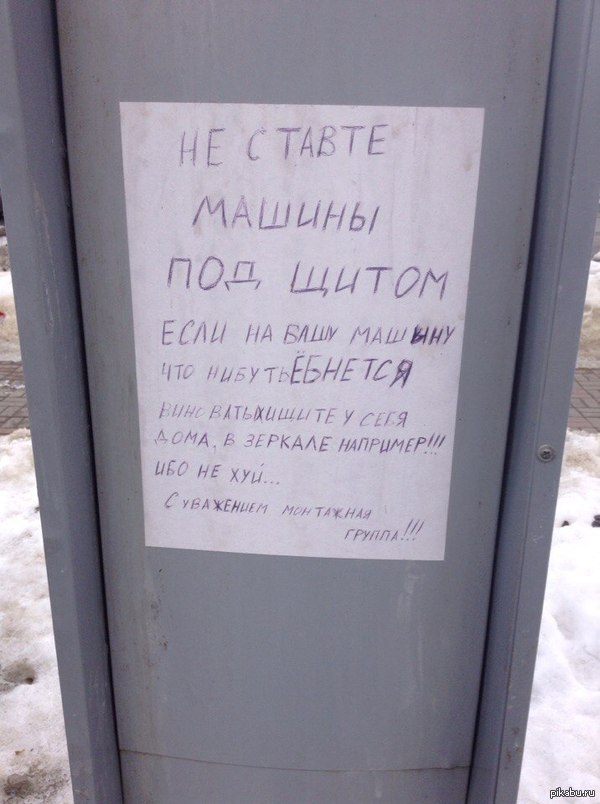 НЕ СТАВТЕ
МАШИНЫ
ПОД ЩИТОМ
ЕСЛИ НА ВАШУ МАШЫНУ
ЧТО НИБУТЬ ЁБНЕТСЯ
ВИНОВАТЫХ ИЩИТЕ У СЕБЯ
ДОМА, В ЗЕРКАЛЕ НАПРИМЕР!!!
ИБО НЕ ХУЙ...
С УВАЖЕНИЕМ МОНТАЖНАЯ
ГРУППА!!!
pikabu.ru